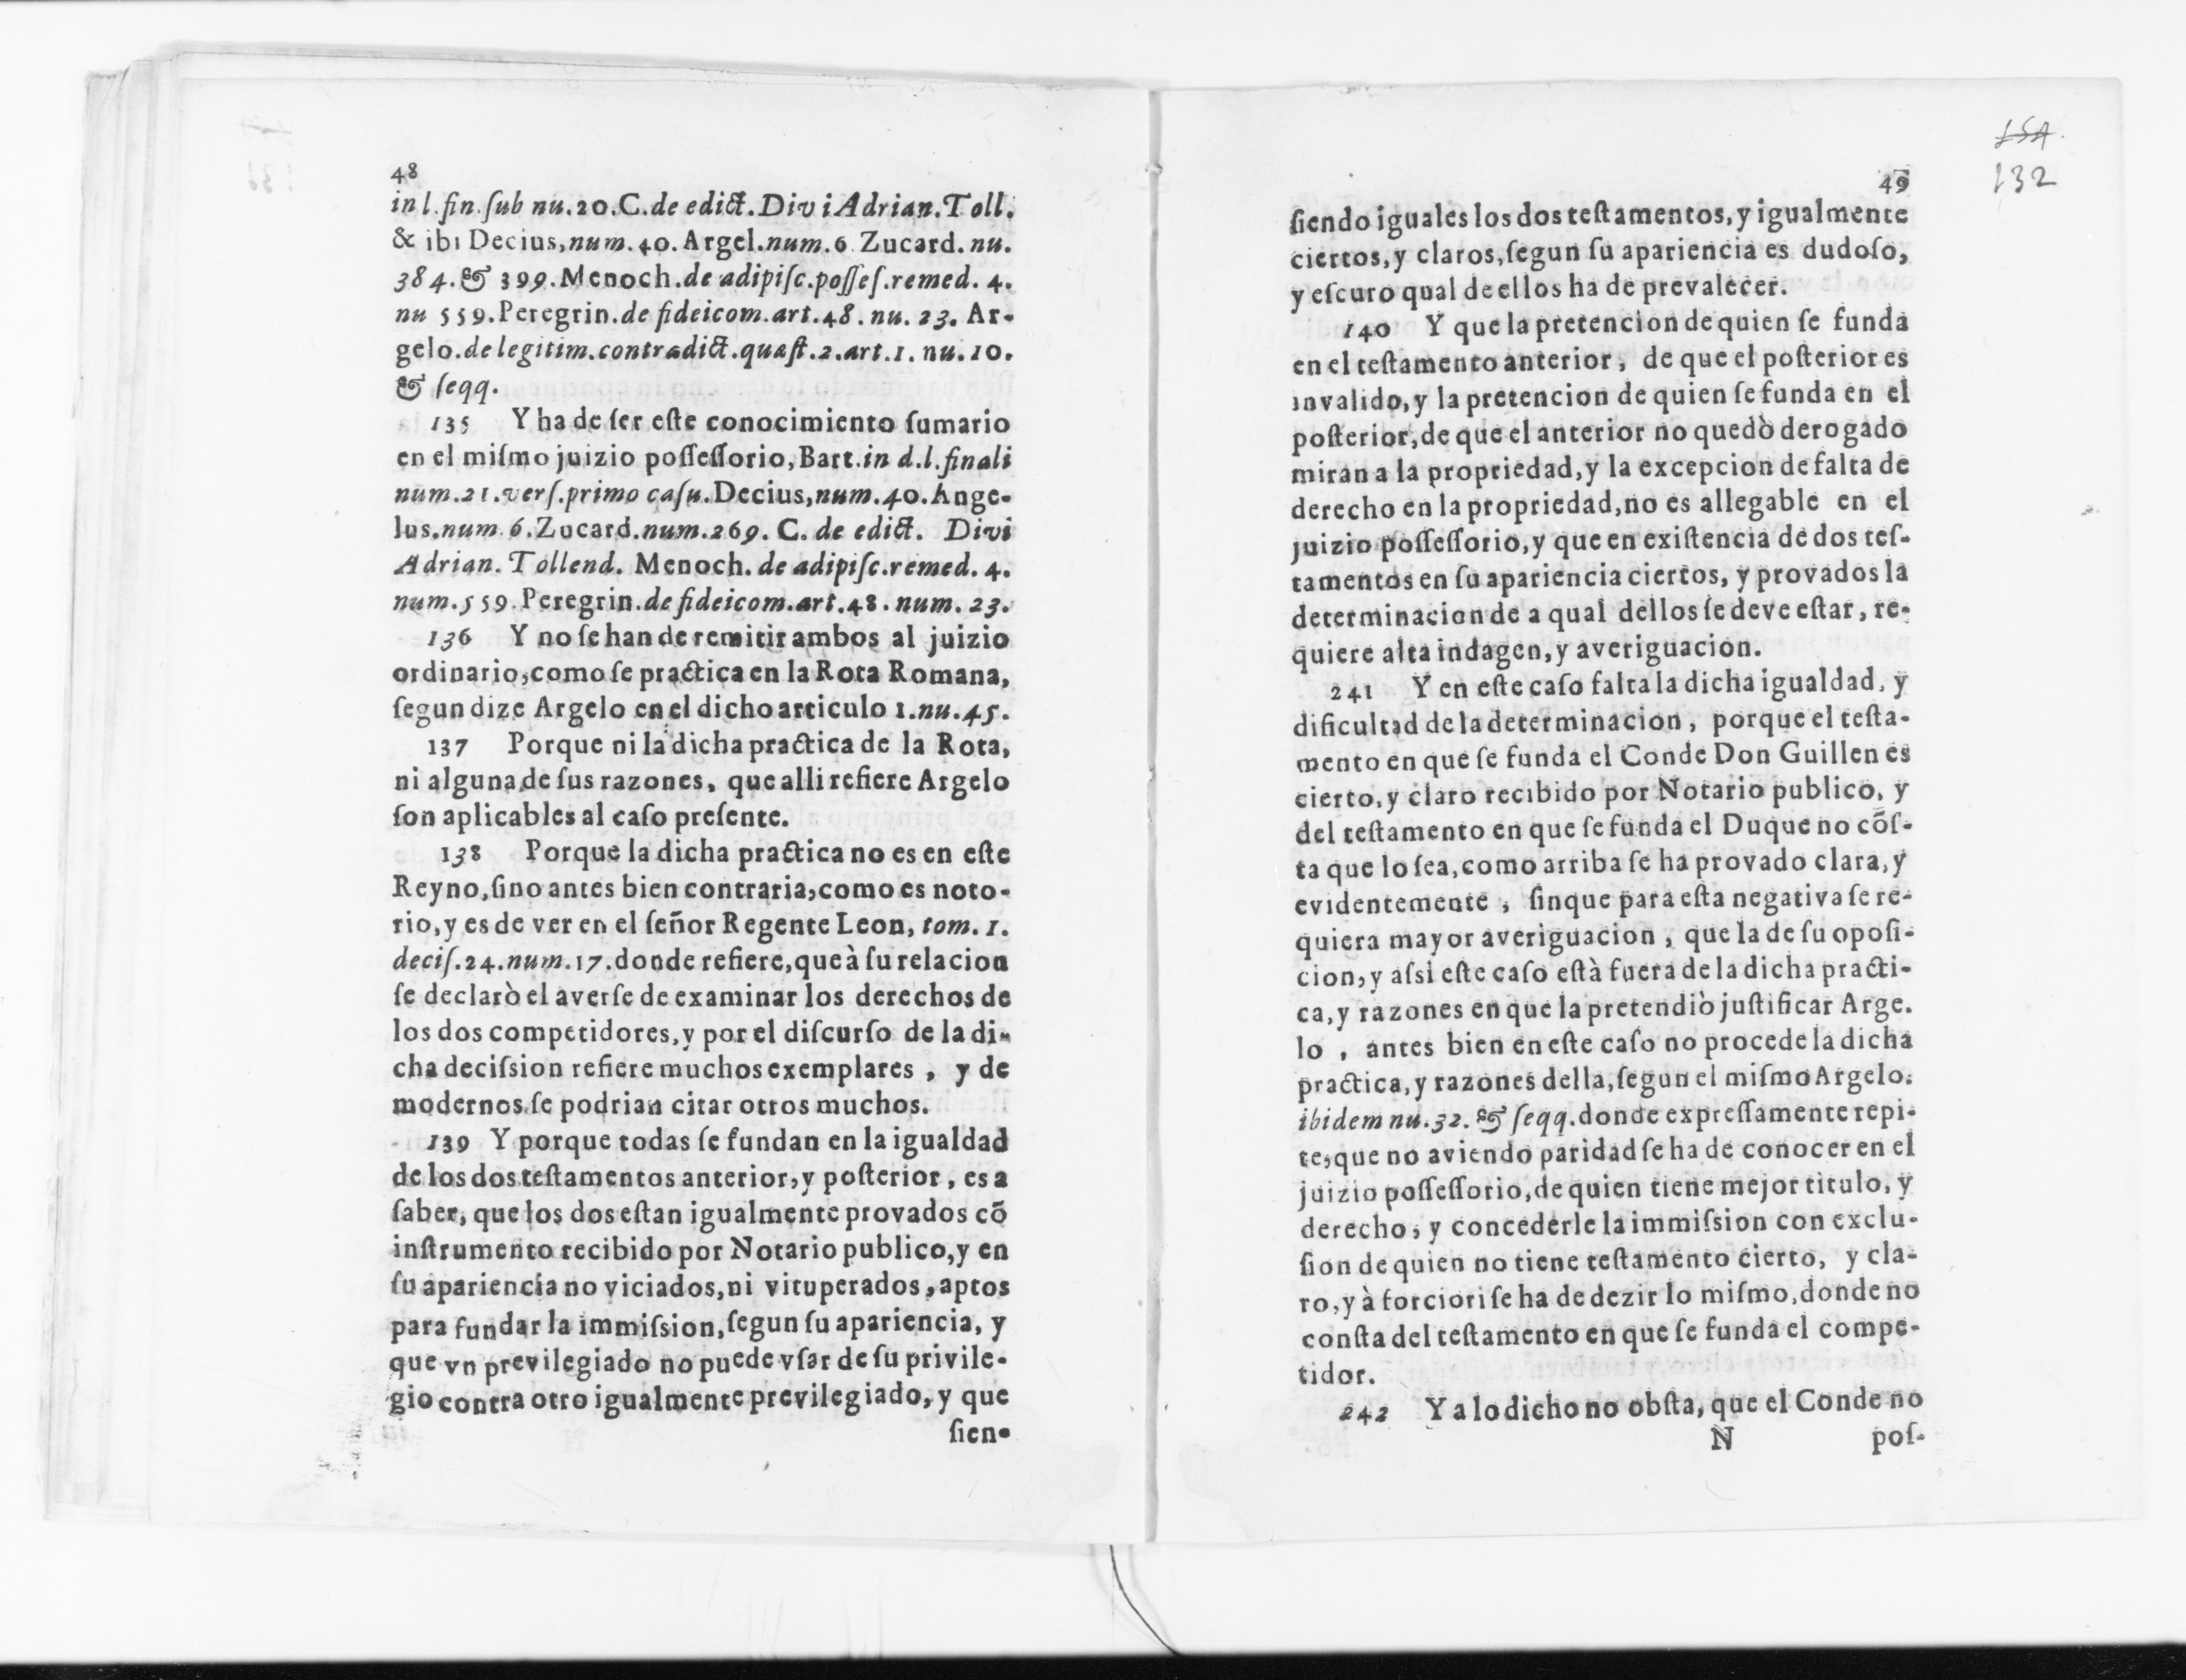 48
in l. fin. ſub nu. 20. C. de edict. Divi Adrian. Toll.
& ibi Decius, num. 40. Argel. num. 6 Zucard. nu.
384. & 399. Menoch. de adipiſc. poſſeſ. remed. 4.
nu 559. Peregrin. de fideicom. art. 48. nu. 23. Ar-
gelo. de legitim. contradict. quæſt. 2. art. 1. nu. 10.
& ſeqq.
135 Y ha de ſer eſte conocimiento ſumario
en el miſmo juizio poſſeſſorio, Bart. in d. l. finali
num. 21. verſ. primo caſu. Decius, num. 40. Ange-
lus. num. 6. Zucard. num. 269. C. de edict. Divi
Adrian. Tollend. Menoch. de adipiſc. remed. 4.
num. 559. Peregrin. de fideicom. art. 48. num. 23.
136 Y no ſe han de remitir ambos al juizio
ordinario, como ſe practica en la Rota Romana,
ſegun dize Argelo en el dicho articulo 1. nu. 45.
137 Porque ni la dicha practica de la Rota,
ni alguna de ſus razones, que alli refiere Argelo
ſon aplicables al caſo preſente.
138 Porque la dicha practica no es en eſte
Reyno, ſino antes bien contraria, como es noto-
rio, y es de ver en el ſeñor Regente Leon, tom. 1.
deciſ. 24. num. 17. donde refiere, que à ſu relacion
ſe declarò el averſe de examinar los derechos de
los dos competidores, y por el diſcurſo de la di-
cha deciſsion refiere muchos exemplares, y de
modernos ſe podrian citar otros muchos.
139 Y porque todas ſe fundan en la igualdad
de los dos teſtamentos anterior, y poſterior, es a
ſaber, que los dos eſtan igualmente provados cõ
inſtrumento recibido por Notario publico, y en
ſu apariencia no viciados, ni vituperados, aptos
para fundar la immiſsion, ſegun ſu apariencia, y
que vn previlegiado no puede vſar de ſu privile-
gio contra otro igualmente previlegiado, y que
ſien-
154
132
49
ſiendo iguales los dos teſtamentos, y igualmente
ciertos, y claros, ſegun ſu apariencia es dudoſo,
y eſcuro qual de ellos ha de prevalecer.
140 Y que la pretencion de quien ſe funda
en el teſtamento anterior, de que el poſterior es
invalido, y la pretencion de quien ſe funda en el
poſterior, de que el anterior no quedò derogado
miran a la propriedad, y la excepcion de falta de
derecho en la propriedad, no es allegable en el
juizio poſſeſſorio, y que en exiſtencia de dos teſ-
tamentos en ſu apariencia ciertos, y provados la
determinacion de a qual dellos ſe deve eſtar, re-
quiere alta indagen, y averiguacion.
241 Y en eſte caſo falta la dicha igualdad, y
dificultad de la determinacion, porque el teſta-
mento en que ſe funda el Conde Don Guillen es
cierto, y claro recibido por Notario publico, y
del teſtamento en que ſe funda el Duque no cõſ-
ta que lo ſea, como arriba ſe ha provado clara, y
evidentemente, ſinque para eſta negativa ſe re-
quiera mayor averiguacion, que la de ſu opoſi-
cion, y aſsi eſte caſo eſtà fuera de la dicha practi-
ca, y razones en que la pretendiò juſtificar Arge.
lo, antes bien en eſte caſo no procede la dicha
practica, y razones della, ſegun el miſmo Argelo.
ibidem nu. 32. & ſeqq. donde expreſſamente repi-
te, que no aviendo paridad ſe ha de conocer en el
juizio poſſeſſorio, de quien tiene mejor titulo, y
derecho, y concederle la immiſsion con exclu-
ſion de quien no tiene teſtamento cierto, y cla-
ro, y à forciori ſe ha de dezir lo miſmo, donde no
conſta del teſtamento en que ſe funda el compe-
tidor.
242 Y a lo dicho no obſta, que el Conde no
N poſ-